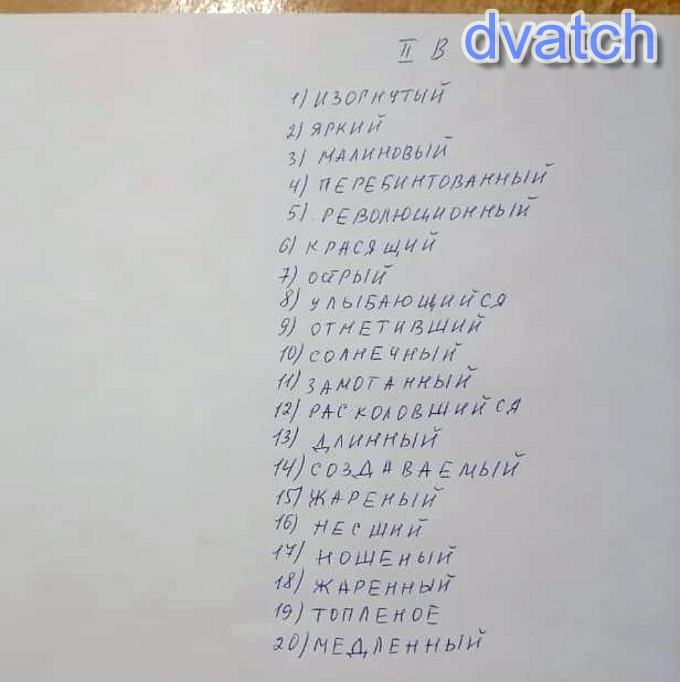 dvatch
II В
1) ИЗОГНУТЫЙ
2) ЯРКИЙ
3) МАЛИНОВЫЙ
4) ПЕРЕБИНТОВАННЫЙ
5). РЕВОЛЮЦИОННЫЙ
6) КРАСЯЩИЙ
7) ОСТРЫЙ
8) УЛЫБАЮЩИЙСЯ
9) ОТМЕТИВШИЙ
10) СОЛНЕЧНЫЙ
11) ЗАМОТАННЫЙ
12) РАСКОЛОВШИЙСЯ
13) ДЛИННЫЙ
14) СОЗДАВАЕМЫЙ
15) ЖАРЕНЫЙ
16) НЕСШИЙ
17) НОШЕНЫЙ
18) ЖАРЕННЫЙ
19) ТОПЛЕНОЕ
20) МЕДЛЕННЫЙ